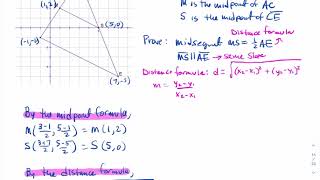 (1,2)
(5,0)
(-1,-1)
(7,-5)
M is the midpoint of AC
S is the midpoint of CE
Distance formula
Prove: midsegment MS = 1/2 AE
MS || AE → same slope
Distance formula: d = √((x₂-x₁)² + (y₂-y₁)²
m = (y₂-y₁)/(x₂-x₁)
By the midpoint formula,
M((3-1)/2, (5-1)/2) = M(1,2)
S((3+7)/2, (5-5)/2) = S(5,0)
By the distance formula,